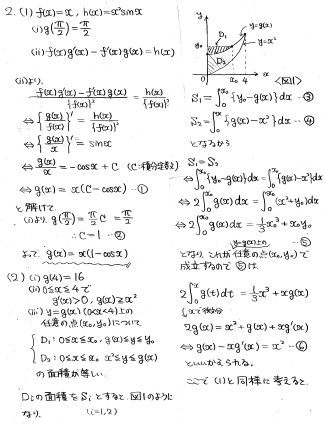 2. (1) f(x)=x, h(x)=x²sinx
(i) g(π/2)=π/2
(ii) f(x)g'(x)-f'(x)g(x)=h(x)
(ii)より、
f(x)g'(x)-f'(x)g(x)/{f(x)}² = h(x)/{f(x)}²
⇔ {g(x)/f(x)}' = h(x)/{f(x)}²
⇔ {g(x)/x}' = sinx
⇔ g(x)/x = -cosx + C (C:積分定数)
⇔ g(x) = x(C-cosx) …①
と解けて
(i)より g(π/2) = π/2 C = π/2
∴ C=1 …②
よって g(x)=x(1-cosx)
(2) (i) g(4)=16
(ii) 0≤x≤4で
g'(x)>0, g(x)≥x²
(iii) y=g(x) (0<x<4)上の
任意の点(x₀,y₀)について
D₁: 0≤x≤x₀, g(x)≤y≤y₀
D₂: 0≤x≤x₀, x²≤y≤g(x)
の面積が等しい
Diの面積をSiとすると、図1のように
なり、 (i=1,2)
y
y=g(x)
y=x²
y₀
D₁
D₂
x₀ 4 x
<図1>
S₁=∫₀^x₀ {y₀-g(x)}dx …③
S₂=∫₀^x₀ {g(x)-x²}dx …④
となるから
S₁=S₂
⇔ ∫₀^x₀ {y₀-g(x)}dx = ∫₀^x₀ {g(x)-x²}dx
⇔ 2∫₀^x₀ g(x)dx = ∫₀^x₀ (x²+y₀)dx
⇔ 2∫₀^x₀ g(x)dx = 1/3 x₀³ + x₀y₀
y=g(x)上の …⑤
となり、これが任意の点(x₀,y₀)で
成立するので ⑤は
2∫₀^x g(t)dt = 1/3 x³ + xg(x)
xで微分
2g(x) = x² + g(x) + xg'(x)
⇔ g(x)-xg'(x) = x² …⑥
といいかえられる。
ここで (1)と同様に考えると、